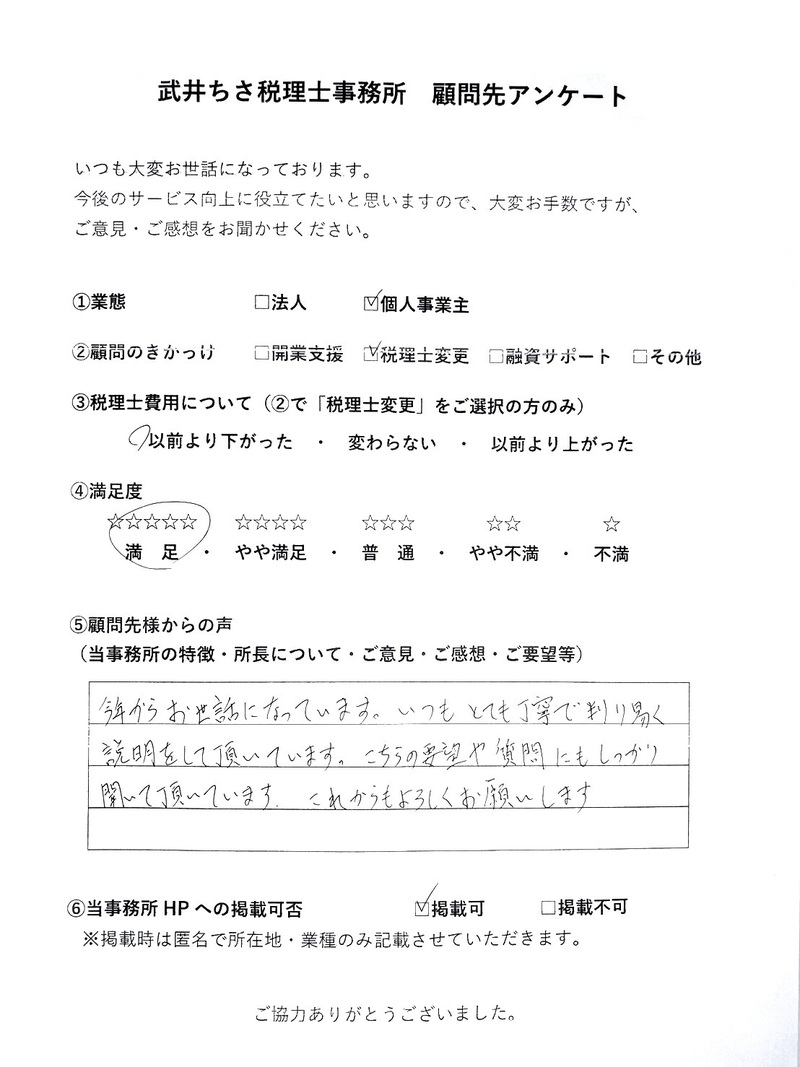 武井ちさ税理士事務所　顧問先アンケート
いつも大変お世話になっております。
今後のサービス向上に役立てたいと思いますので、大変お手数ですが、
ご意見・ご感想をお聞かせください。
①業態　□法人　☑個人事業主
②顧問のきかっけ　□開業支援　☑税理士変更　□融資サポート　□その他
③税理士費用について（②で「税理士変更」をご選択の方のみ）
以前より下がった　・　変わらない　・　以前より上がった
④満足度
☆☆☆☆☆　☆☆☆☆　☆☆☆　☆☆　☆
満　足　・　やや満足　・　普　通　・　やや不満　・　不満
⑤顧問先様からの声
（当事務所の特徴・所長について・ご意見・ご感想・ご要望等）
今年からお世話になっています。いつもとても丁寧で判り易く
説明をして頂いています。こちらの要望や質問にもしっかり
聞いて頂いています。これからもよろしくお願いします
⑥当事務所 HP への掲載可否　☑掲載可　□掲載不可
※掲載時は匿名で所在地・業種のみ記載させていただきます。
ご協力ありがとうございました。